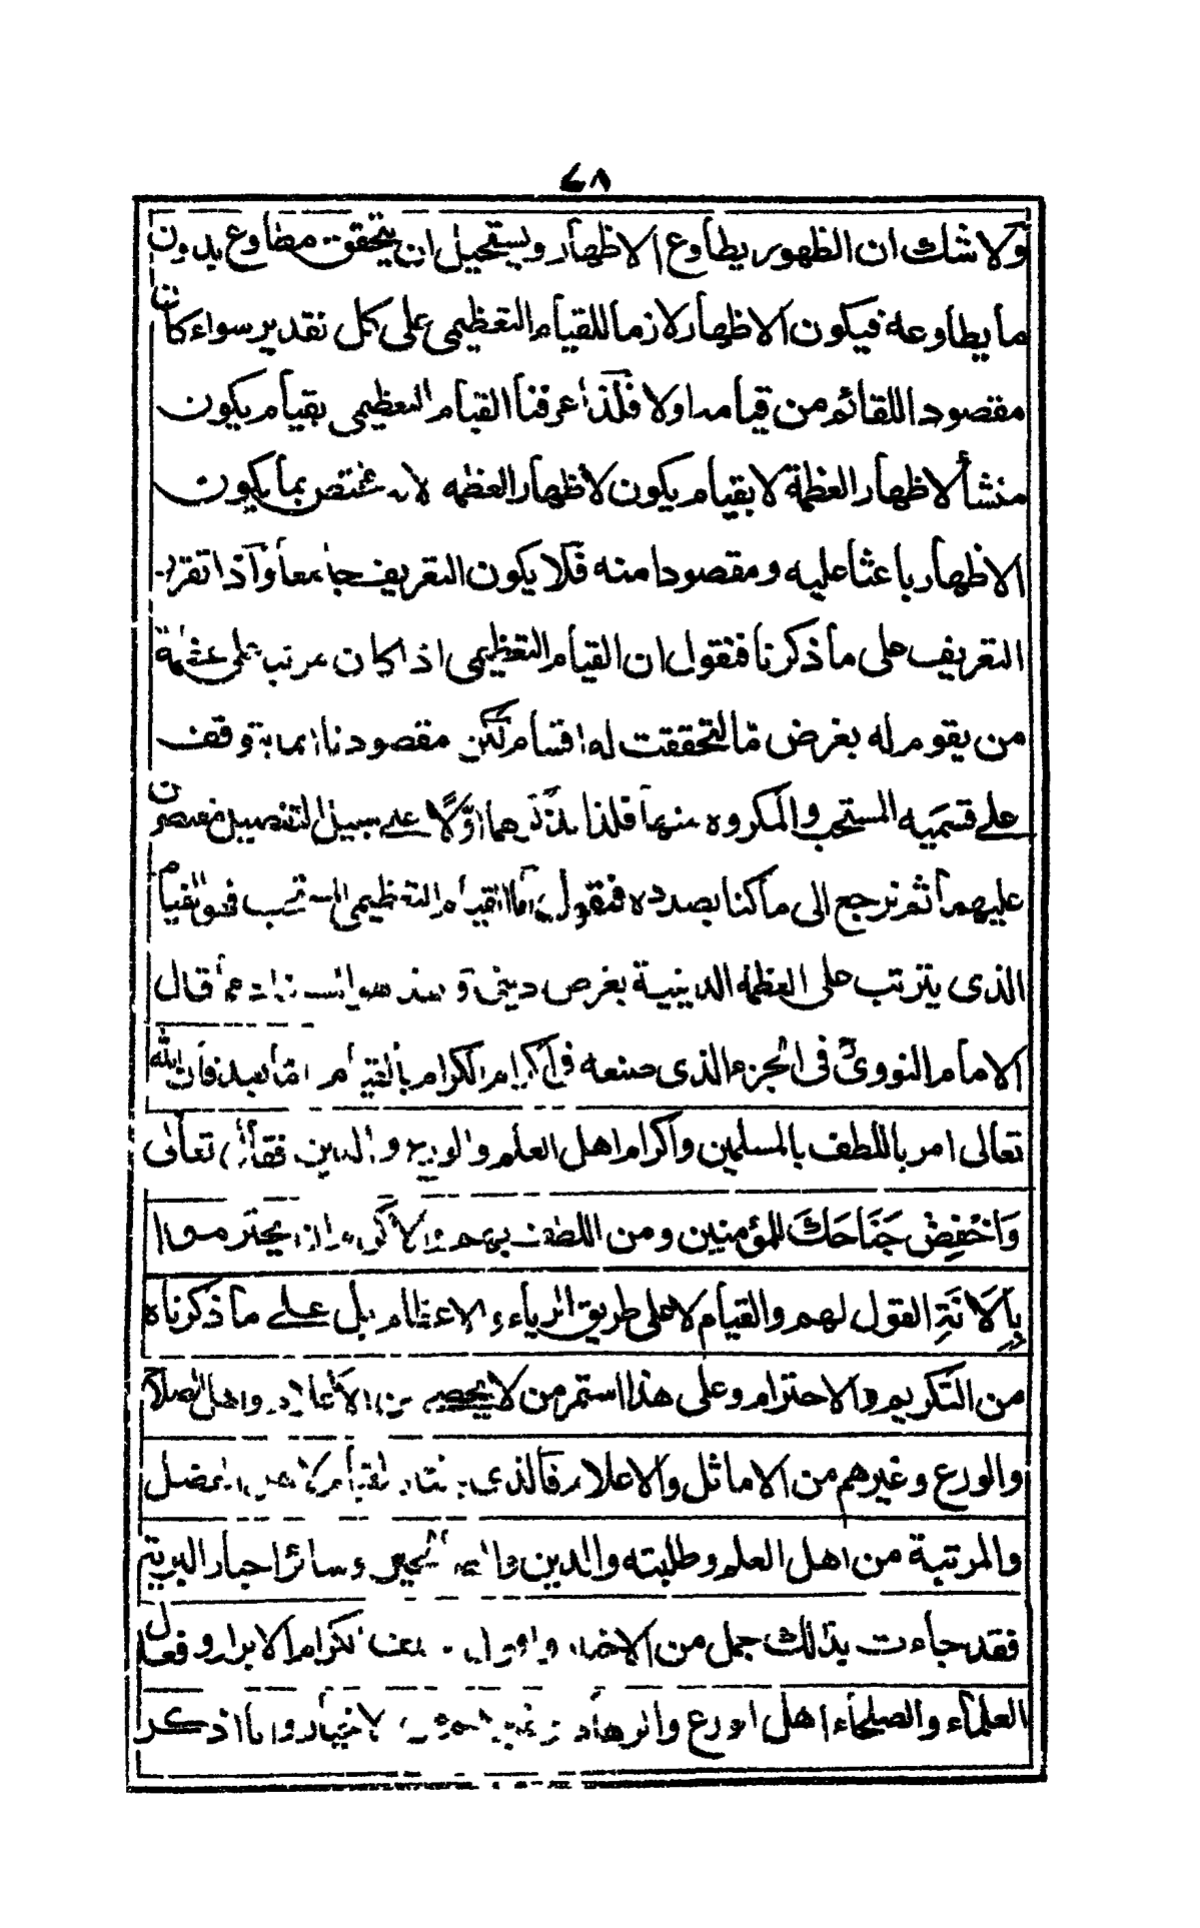 ٤٨
ولا شك ان الظهور يطاوع الاظهار ويستحيل ان يتحقق مطاوع بدون
ما يطاوعه فيكون الاظهار لازما للقيام التعظيمى على كل تقدير سواء كان
مقصودا للقائم من قيامه اولا فلذا عرفنا القيام التعظيمى بقيام يكون
منشأ لاظهار العظمة لا بقيام يكون لاظهار العظمه لانه يختص بما يكون
الاظهار باعثا عليه ومقصودا منه فلا يكون التعريف جامعا واذا تقرر
التعريف على ما ذكرنا فنقول ان القيام التعظيمى اذا كان مرتبا على عظمة
من يقوم له بغرض ما لتحققت له اقسام لكن مقصودنا انما يتوقف
على قسميه المستحب والمكروه منها فلذا نذكرهما اولا على سبيل التفصيل مقتصرين
عليهما ثم نرجع الى ما كنا بصدده فنقول اما القيام التعظيمى المستحب فهو القيام
الذى يترتب على العظمة الدينية بغرض دينى وسند هو استحبابه ما قال
الامام النووى فى الجزء الذى صنعه فى اكرام الكرام بالقيام اما بعد فان الله
تعالى امر باللطف بالمسلمين واكرام اهل العلم والورع والدين فقال تعالى
وَاخْفِضْ جَنَاحَكَ للمؤمنين ومن اللطف بهم والاكرام ان يحترموا
بِالَانَةِ القول لهم والقيام لا على طريق الرياء والاعظام بل على ما ذكرناه
من التكريم والاحترام وعلى هذا استمر من لا يحصى من الاعلام واهل الصلاح
والورع وغيرهم من الاماثل والاعلام فالذى يختار القيام لاهل الفضل
والمرتبة من اهل العلم وطلبته والدين وسائر اخيار البرية
فقد جاءت بذلك جمل من الاخبار اكرام الابرار وفعل
العلماء والصلحاء اهل الورع والزهاد الاخيار وانا اذكر